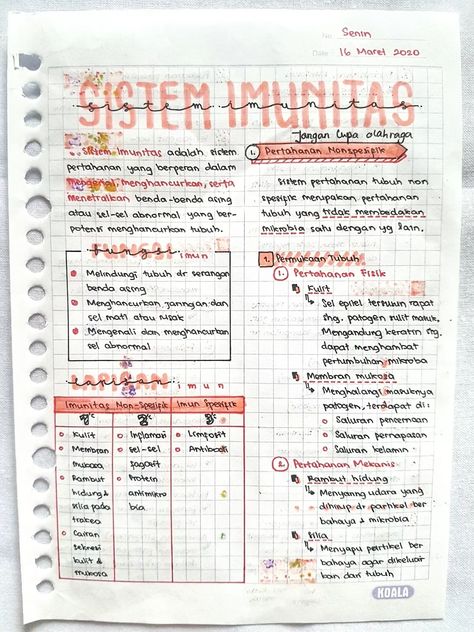 No: Senin
Date: 16 Maret 2020
SISTEM IMUNITAS
sistem imunitas
Jangan lupa olahraga
Sistem Imunitas adalah sistem
pertahanan yang berperan dalam
mengenal, menghancurkan, serta
menetralkan benda-benda asing
atau sel-sel abnormal yang ber-
potensi menghancurkan tubuh.
FUNGSI
fungsi imun
Melindungi tubuh dr serangan
benda asing
Menghancurkan jaringan dan
sel mati atau rusak
Mengenali dan menghancurkan
sel abnormal
LAPISAN
lapisan imun
Imunitas Non-Spesifik Imun Spesifik
Kulit
Membran
mukosa
Rambut
hidung &
silia pada
trakea
Cairan
sekresi
kulit &
mukosa
Inflamasi
sel-sel
fagosit
Protein
antimikro
bia
Limfosit
Antibodi
1. Pertahanan Nonspesifik
Sistem pertahanan tubuh non
spesifik merupakan pertahanan
tubuh yang tidak membedakan
mikrobia satu dengan yg lain.
1. Permukaan Tubuh
1. Pertahanan Fisik
Kulit
Sel epitel tersusun rapat
shg. patogen sulit masuk.
Mengandung keratin shg.
dapat menghambat
pertumbuhan mikroba
Membran mukosa
Menghalangi masuknya
patogen, terdapat di:
Saluran pencernaan
Saluran pernapasan
Saluran kelamin
2 Pertahanan Mekanis
Rambut hidung
Menyaring udara yang
dihirup dr partikel ber
bahaya & mikrobia
Silia
Menyapu partikel ber
bahaya agar dikeluar
kan dari tubuh
KOALA